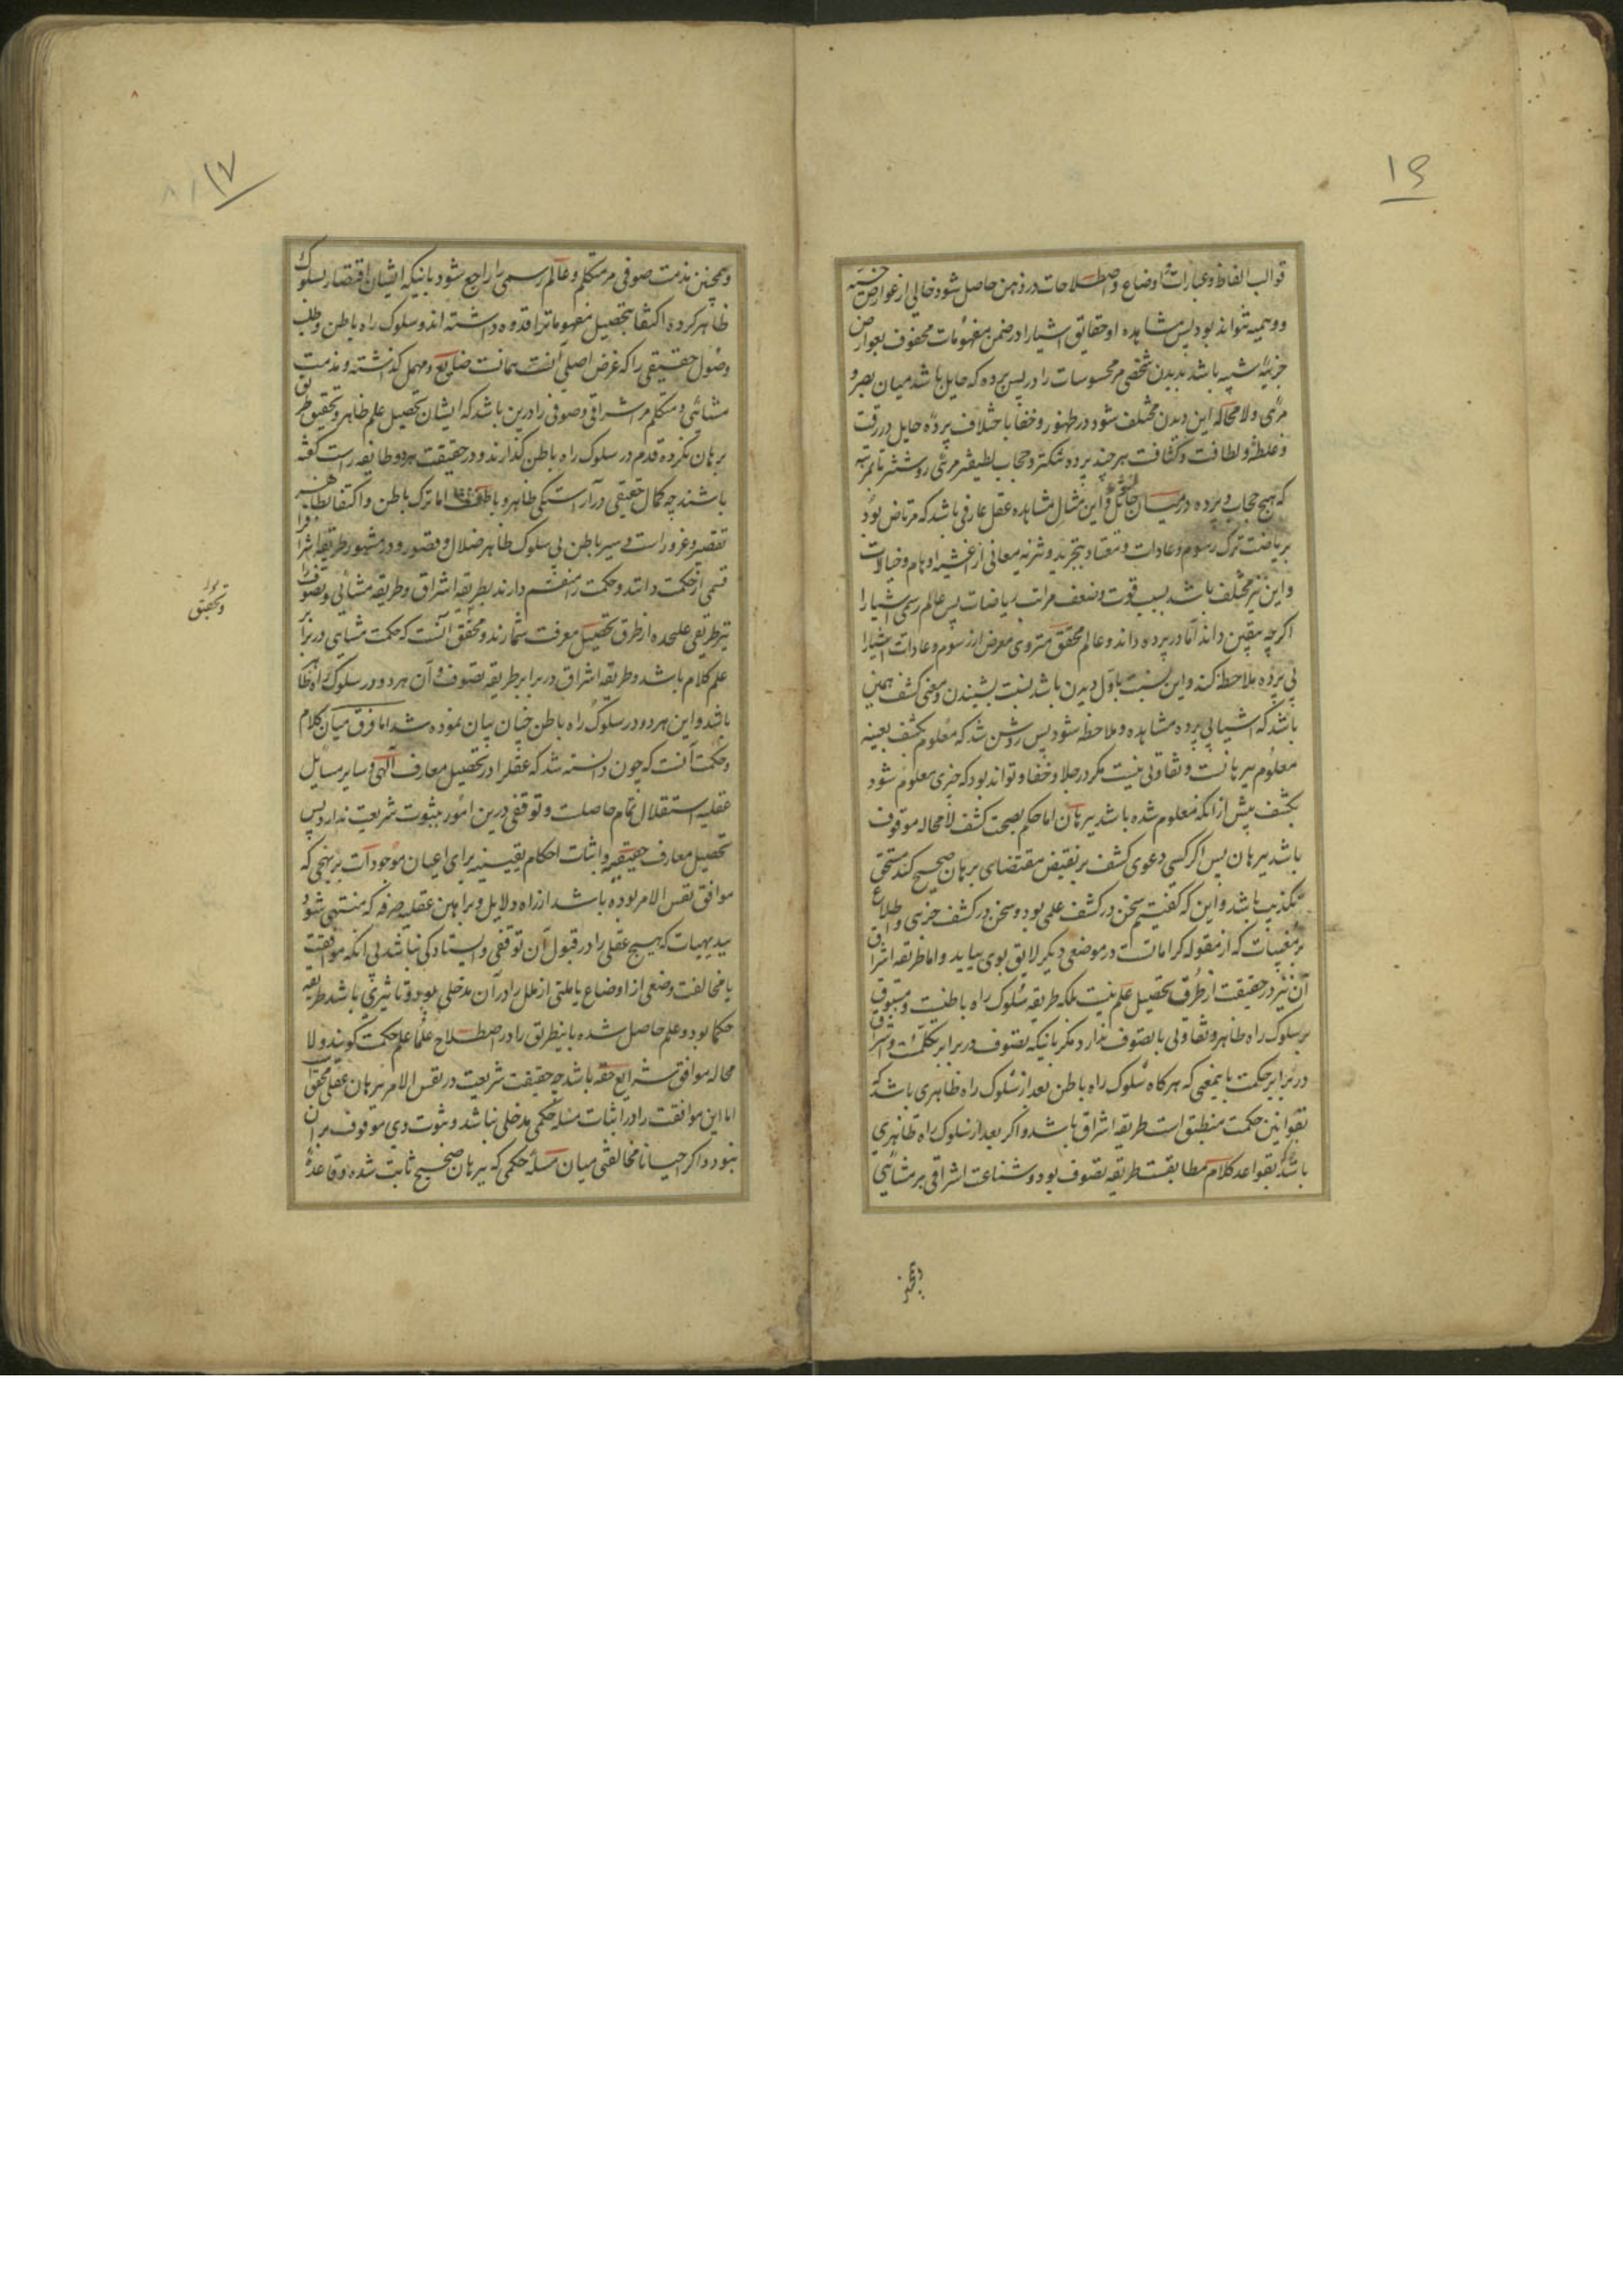 ۱۶
قوالب الفاظ و عبارات و اوضاع و اصطلاحات در ذهن حاصل شود خالی از عوارض حسیه
و وهمیه نتواند بود پس مشاهده او حقایق اشیا را در ضمن مفهومات محفوف بعوارض
جزئیه شبیه باشد بدیدن شخصی مر محسوسات را در پس پرده که حایل باشد میان بصر و
مرئی و لا محاله این دیدن مختلف شود در ظهور و خفا باختلاف پرده حایل در رقت
و غلظت و لطافت و کثافت هر چند پرده تنکتر و حجاب لطیفتر مرئی روشنتر تا بمرتبه
که هیچ حجاب و پرده در میان حائل نبود و این مثال مشاهده عقل عارفی باشد که مرتاض بود
بریاضت ترک رسوم و عادات و معتاد بتجرید و تنزیه معانی از اغشیه اوهام و خیالات
و این نیز مختلف باشد بسبب قوت و ضعف مراتب ریاضات پس عالم رسمی اشیا را
اگرچه بیقین داند اما در پرده داند و عالم محقق متروی معرض از رسوم و عادات اشیا را
بی پرده ملاحظه کند و این نسبت باول دیدن باشد نسبت بشنیدن و معنی کشف همین
باشد که اشیا بی پرده مشاهده و ملاحظه شود پس روشن شد که معلوم بکشف بعینه
معلوم ببرهانست و تفاوتی نیست مگر در جلا و خفا و تواند بود که چیزی معلوم شود
بکشف پیش از آنکه معلوم شده باشد ببرهان اما حکم بصحت کشف لا محاله موقوف
باشد ببرهان پس اگر کسی دعوی کشف بر نقیض مقتضای برهان صحیح کند مستحق
تکذیب باشد و این که گفتیم سخن در کشف علمی بود و سخن در کشف جزئی و اطلاع
بر مغیبات که از مقوله کراماتست در موضعی دیگر لایق بوی بیاید و اما طریقه اشراق
آن نیز در حقیقت از طرق تحصیل علم نیست بلکه طریقه سلوک راه باطنست و مسبوق
بر سلوک راه ظاهر و تفاوتی با تصوف ندارد مگر بانیکه تصوف در برابر تکلمست و اشراق
در برابر حکمت باینمعنی که هرگاه سلوک راه باطن بعد از سلوک راه ظاهری باشد که
بقوانین حکمت منطبق است طریقه اشراق باشد و اگر بعد از سلوک راه ظاهری
باشد که بقواعد کلام مطابقست طریقه تصوف بود و شناعت اشراقی بر مشائی
۱۷
و همچنین مذمت صوفی مر متکلم و عالم رسمی را راجع شود بانیکه ایشان اقتصار بسلوک
ظاهر کرده اکتفا بتحصیل مفهومات را قدوه داشته اند و سلوک راه باطن و طلب
وصول حقیقی را که غرض اصلی آنست همانست ضایع و مهمل گذاشته و مذمت
مشائی و متکلم مر اشراقی و صوفی را درین باشد که ایشان تحصیل علم ظاهر و تحقیق طریق
برهان نکرده قدم در سلوک راه باطن گذارند و در حقیقت هر دو طایفه راست گفته
باشند چه کمال حقیقی در آراستگی ظاهر و باطن است اما ترک باطن و اکتفا بظاهر
تقصیر و غرور است و سیر باطن بی سلوک ظاهر ضلال و قصور و در مشهور طریقه اشراق را
قسمی از حکمت دانند و حکمت را منقسم دارند بطریقه اشراق و طریقه مشائی و تصوف را
نیز طریقی علیحده از طرق تحصیل معرفت شمارند و محقق آنست که حکمت مشایی در برابر
علم کلام باشد و طریقه اشراق در برابر طریقه تصوف و آن هر دو در سلوک راه ظاهر
باشد و این هر دو در سلوک راه باطن چنان بیان نموده شد اما فرق میان کلام
و حکمت آنست که چون دانسته شد که عقل را در تحصیل معارف آلهی و سایر مسایل
عقلیه استقلال تمام حاصلست و توقفی درین امور بثبوت شریعت ندارد پس
تحصیل معارف حقیقیه و اثبات احکام یقینیه برای اعیان موجودات بر نهجی که
موافق نفس الامر بوده باشد از راه دلایل و براهین عقلیه صرفه که منتهی شود
ببدیهیات که هیچ عقلی را در قبول آن توقفی و ایستادگی نباشد بی آنکه موافقت
یا مخالفت وضعی از اوضاع یا ملتی از ملل را در آن مدخلی بود و تاثیری باشد طریقه
حکما بود و علم حاصل شده باینطریق را در اصطلاح علما علم حکمت گویند و لا
محاله موافق شرایع حقه باشد چه حقیقت شریعت در نفس الامر ببرهان عقلی محقق است
اما این موافقت را در اثبات مسئله حکمی مدخلی نباشد و ثبوت وی موقوف بر آن
نبود و اگر احیانا مخالفتی میان مسئله حکمی که ببرهان صحیح ثابت شده و قاعده
و تحقیق